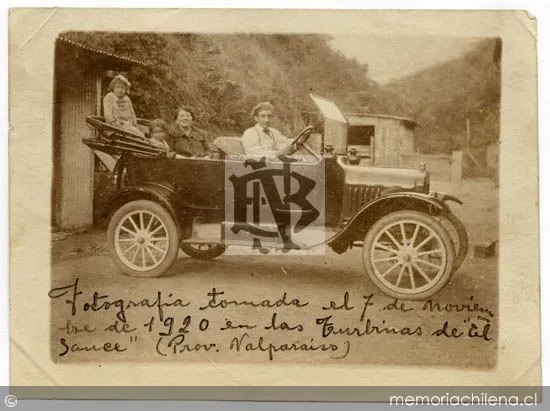 BN
Fotografia tomada el 7 de Noviem
bre de 1920 en las Turbinas de "El
Sauce" (Prov. Valparaiso)
© www.memoriachilena.cl